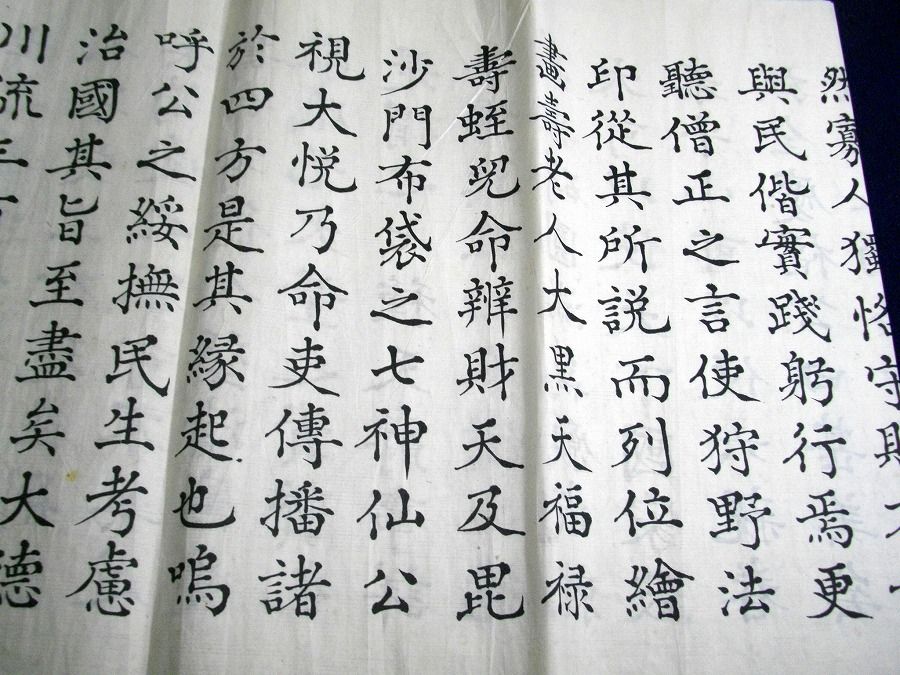 然寡人獨恪守
與民偕實踐躬行焉更
聽僧正之言使狩野法
印從其所説而列位繪
畫壽老人大黒天福禄
壽蛭兒命辨財天及毘
沙門布袋之七神仙公
視大悦乃命吏傳播諸
於四方是其縁起也嗚
呼公之綏撫民生考慮
治國其旨至盡矣大德
川流